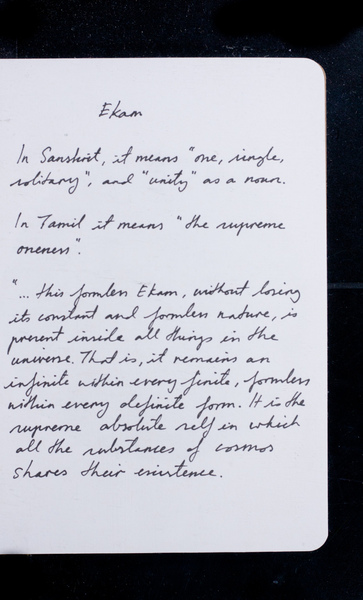 Ekam
In Sanskrit, it means "one, single,
solitary", and "unity" as a noun.
In Tamil it means "the supreme
oneness".
"... this formless Ekam, without losing
its constant and formless nature, is
present inside all things in the
universe. That is, it remains an
infinite within every finite, formless
within every definite form. It is the
supreme absolute self in which
all the substances of cosmos
shares their existence.